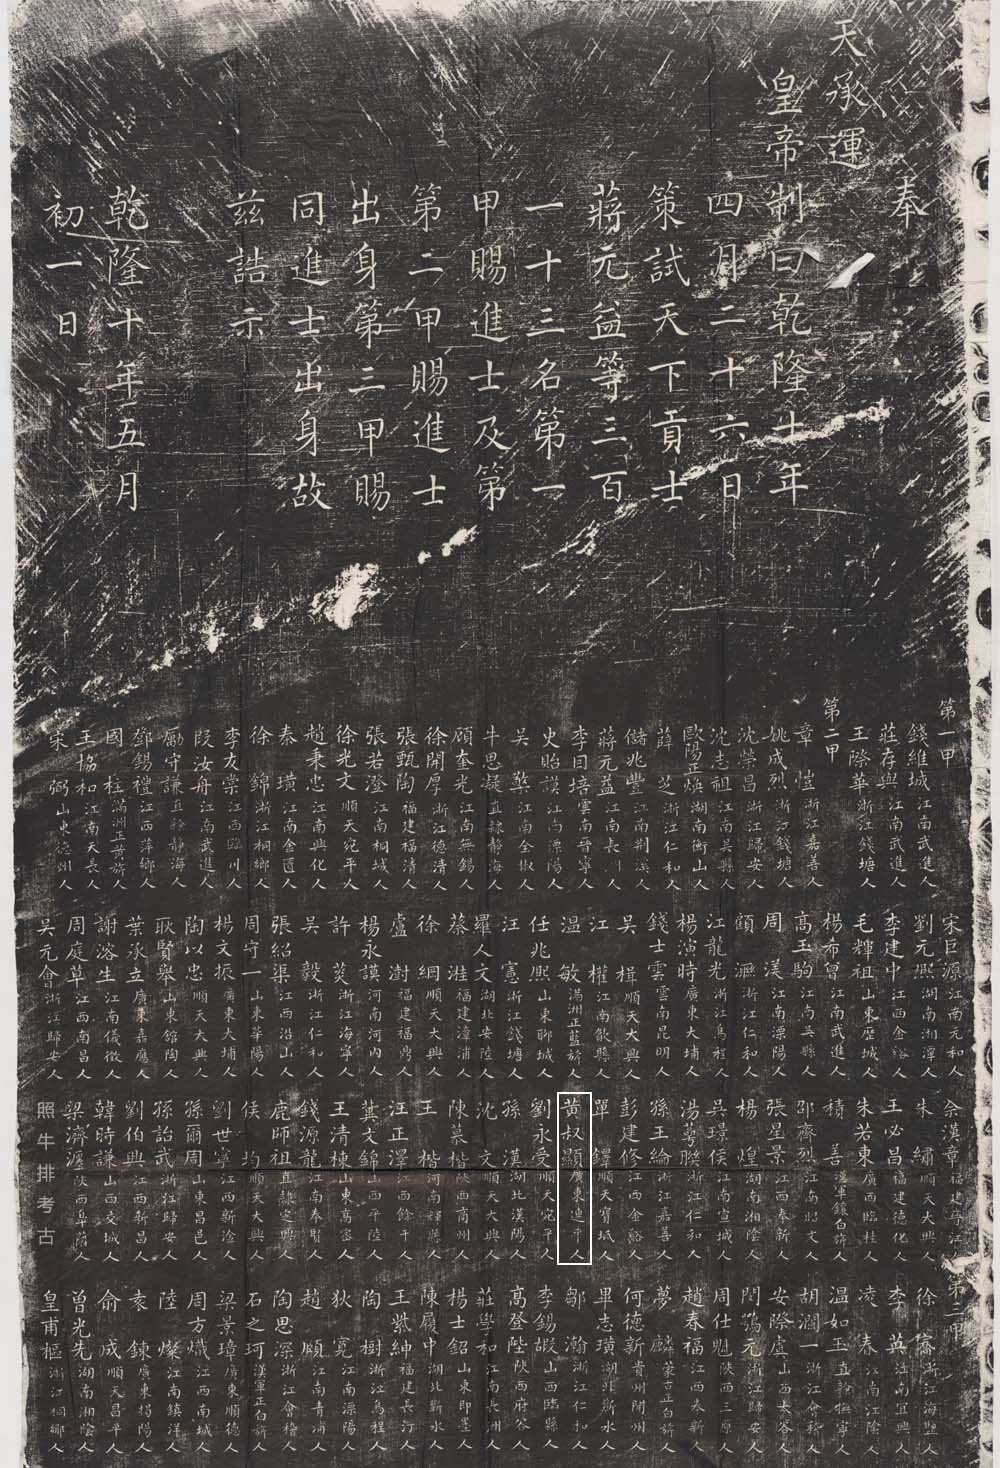 奉
天承運
皇帝制曰乾隆十年
四月二十六日
策試天下貢士
蔣元益等三百
一十三名第一
甲賜進士及第
第二甲賜進士
出身第三甲賜
同進士出身故
茲誥示
乾隆十年五月
初一日
第一甲
錢維城江南武進人
莊存與江南武進人
王際華浙江錢塘人
第二甲
章愷浙江嘉善人
姚成烈浙江錢塘人
沈榮昌浙江歸安人
沈志祖江南吳縣人
歐陽正煥湖南衡山人
薛芝浙江仁和人
儲兆豐江南荊溪人
蔣元益江南長洲人
李因培雲南晉寧人
史貽謨江南溧陽人
吳檠江南全椒人
牛思凝直隸靜海人
顧奎光江南無錫人
徐開厚浙江德清人
張甄陶福建福清人
張若澄江南桐城人
徐光文順天宛平人
趙秉忠江南興化人
秦璜江南金匱人
徐錦浙江桐鄉人
李友棠江西臨川人
段汝舟江南武進人
勵守謙直隸靜海人
鄧錫禮江西萍鄉人
國柱滿洲正黃旂人
王協和江南天長人
宋弼山東德州人
宋巨源江南元和人
劉元熙湖南湘潭人
李建中江西金谿人
毛輝祖山東歷城人
楊希曾江南武進人
高玉駒江南吳縣人
周渼江南溧陽人
顧濂浙江仁和人
江龍光浙江烏程人
楊演時廣東大埔人
錢士雲雲南昆明人
吳楫順天大興人
江權江南歙縣人
溫敏滿洲正藍旂人
任兆熙山東聊城人
汪憲浙江錢塘人
羅人文湖北安陸人
蔡漄福建漳浦人
徐綱順天大興人
盧澍福建福鼎人
楊永謨河南河內人
許菼浙江海寧人
吳毅浙江仁和人
張紹渠江西鉛山人
周守一山東華陽人
楊文振廣東大埔人
陶以忠順天大興人
耿賢舉山東館陶人
葉承立廣東嘉應人
謝溶生江南儀徵人
周庭草江西南昌人
吳元會浙江歸安人
佘漢章福建晉江人
朱繡順天大興人
王必昌福建德化人
朱若東廣西臨桂人
積善漢軍鑲白旂人
邵齊烈江南昭文人
張星景江西奉新人
楊煌湖南湘陰人
吳璟侯江南宣城人
湯萼聯浙江仁和人
孫王綸浙江嘉善人
彭建修江西金谿人
單鐸順天寶坻人
黃叔顯廣東連平人
劉永受順天宛平人
孫漢湖北漢陽人
沈文順天大興人
陳墓楷陝西商州人
王楷河南輝縣人
汪正澤江西餘干人
龔文錦山西平陸人
王清棟山東高密人
錢源龍江南奉賢人
鹿師祖直隸定興人
侯均順天大興人
劉世寧江西新淦人
孫爾周山東昌邑人
孫詒武浙江歸安人
劉伯興江西新昌人
韓時謙山西交城人
梁濟瀍陝西皋蘭人
照牛排考古
第三甲
徐齋浙江海鹽人
李英江南宜興人
凌春江南江陰人
溫如玉直隸撫寧人
胡澗一浙江會稽人
安際虞山西太谷人
閔鶚元浙江歸安人
周仕魁陝西三原人
趙春福江西太新人
夢麟蒙古正白旂人
何德新貴州開州人
畢志璜湖北蘄水人
鄒瀚浙江仁和人
李錫嘏山西臨縣人
高登陛陝西府谷人
莊學和江南長洲人
楊士鋁山東即墨人
陳履中湖北蘄水人
王紫紳福建長汀人
陶樹浙江烏程人
狄寬江南溧陽人
趙願江南青浦人
陶思深浙江會稽人
石之珂漢軍正白旂人
梁景璋廣東順德人
周方熾江西南城人
陸燦江南鎮洋人
袁鍊廣東揭陽人
俞成順天昌平人
曾光先湖南湘陰人
皇甫樞浙江桐鄉人